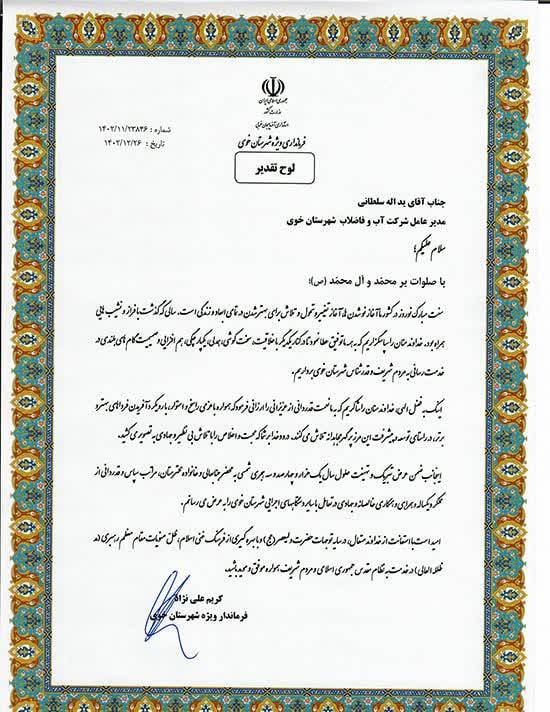 جمهوری اسلامی ایران
وزارت کشور
استانداری آذربایجان غربی
فرمانداری ویژه شهرستان خوی
شماره : ۱۴۰۲/۱۱/۲۳۸۴۶
تاریخ : ۱۴۰۲/۱۲/۲۶
لوح تقدیر
جناب آقای ید اله سلطانی
مدیر عامل شرکت آب و فاضلاب شهرستان خوی
سلام علیکم؛
با صلوات بر محمّد و آل محمّد (ص)؛
سنت مبارک نوروز در کشور ما آغاز نو شدن ها، آغاز تغییر و تحول و تلاش برای بهتر شدن در تمامی ابعاد و زندگی است. سالی که گذشت با فراز و نشیب هایی
همراه بود. خداوند منان را سپاسگزاریم که به همه ما توفیق عطا نمود تا در کنار یکدیگر با خلاقیت، سخت کوشی، همدلی، یکپارچگی، هم افزایی و صمیمیت گام های بلندی در
خدمت رسانی به مردم شریف و قدرشناس شهرستان خوی برداریم.
اینک به فضل الهی، خداوند منان را شاکریم که به ما نعمت قدردانی از عزیزانی را ارزانی فرمود که همواره با عزمی راسخ و استوار، با رویکرد آفریدن فرداهای بهتر و
برتر، در راستای توسعه همه پیشرفت این مرز پر گهر مجاهدانه تلاش می کنند. درود خدا بر شما که محبت و اخلاص را با تلاش بی نظیر و جهادی به تصویر می کشید.
اینجانب ضمن عرض تبریک و تهنیت حلول سال یک هزار و چهارصد و سه هجری شمسی به محضر جنابعالی و خانواده محترمتان، مراتب سپاس و قدردانی از
تفکر و یکساله و همراهی و همکاری خالصانه و جهادی در تعامل با سایر دستگاههای اجرایی شهرستان خوی را به عرض می رسانم.
امید است با استعانت از خداوند متعال، در سایه توجهات حضرت ولیعصر (عج) و با بهره گیری از فرهنگ غنی اسلام، تحقق منویات مقام معظم رهبری (مد
ظله العالی) در خدمت به نظام مقدس جمهوری اسلامی و مردم شریف همواره موفق و موید باشید.
کریم علی نژاد
فرماندار ویژه شهرستان خوی